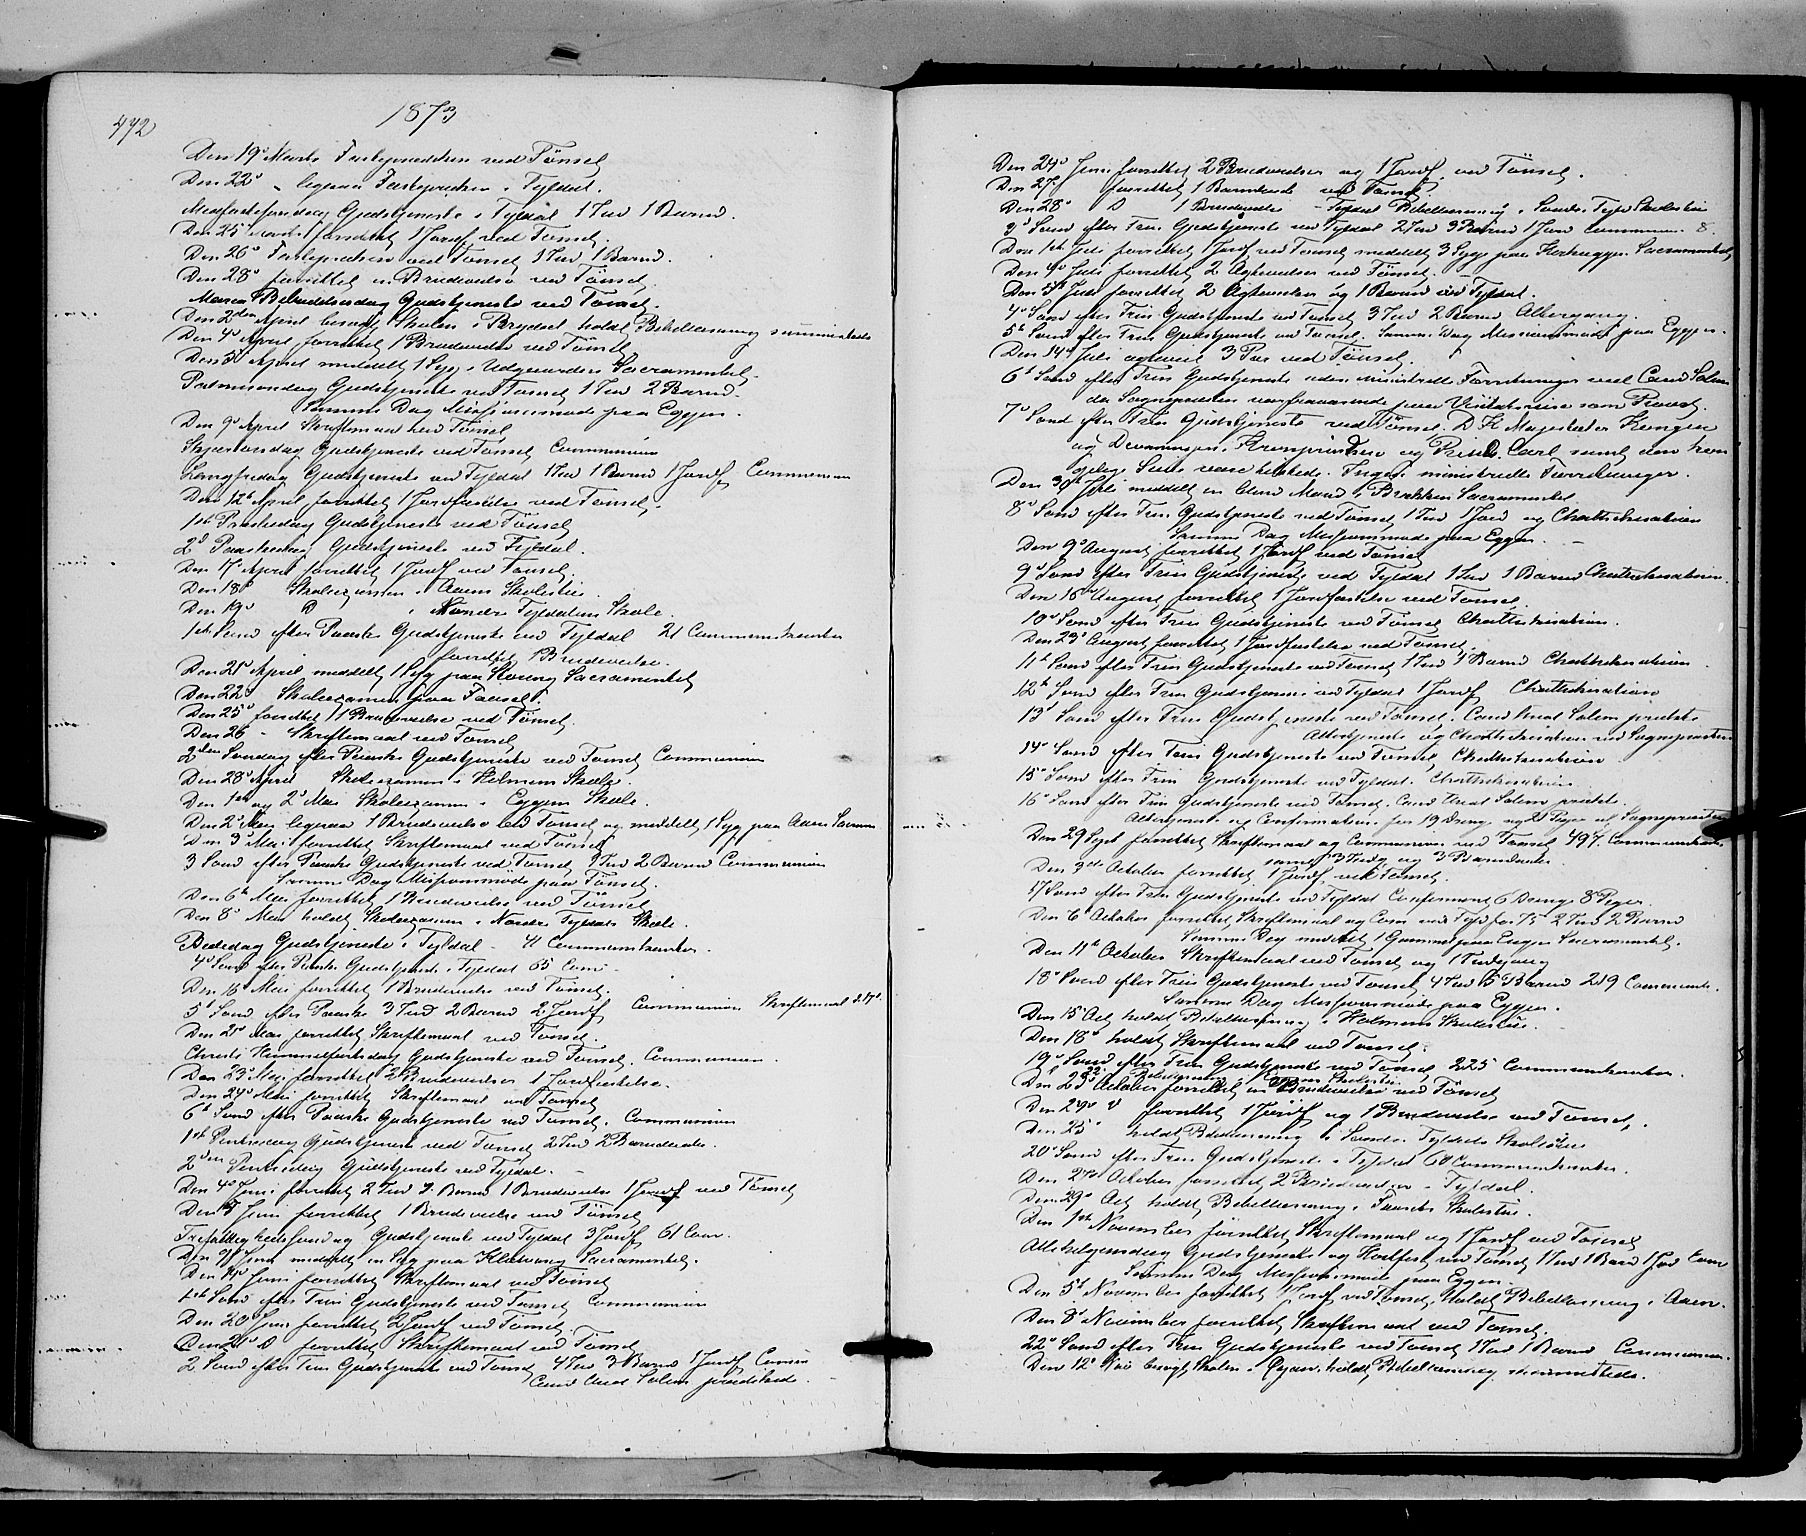 472
1873
Den 19d Marts Fasteprædiken ved Tönset
Den 22d " ligesaa Fasteprædiken i Tyldal.
Midfastesøndag Gudstjeneste i Tyldal 1 Ind 1 Barnd.
Den 25d Marts forrettet 1 Jordf ved Tönset.
Den 26d Fasteprædiken ved Tönset 1 Ind 1 Barnd.
Den 28d forrettet en Brudevielse ved Tönset
Mariæ Bebudelsesdag Gudstjeneste ved Tönset.
Den 2den April besøgt Skolen i Brydal holdt Bibellæsning sammesteds
Den 4d April forrettet 1 Brudevielse ved Tönset
Den 5d April meddelt 1 Syg i Udgaarden Sacramentet.
Palmesøndag Gudstjeneste ved Tönset 1 Ind 2 Barnd.
Samme Dag Missionsmøde paa Eggen.
Den 9d April Skriftemaal ved Tönset
Skjærtorsdag Gudstjeneste ved Tönset Communion
Langfredag Gudstjeneste ved Tyldal 1 Ind 1 Barnd 1 Jordf Communion
Den 12t April forrettet 1 Jordfæstelse ved Tönset.
1ste Paaskedag Gudstjeneste ved Tönset
2d Paaskedag Gudstjeneste ved Tyldal.
Den 17d April forrettet 1 Jordf ved Tönset.
Den 18d Skoleexamen i Aaens Skolestue.
Den 19d D i Nordre Tyldalens Skole
1ste Sønd efter Paaske Gudstjeneste ved Tyldal 21 Communikanter
forrettet 1 Brudevielse.
Den 21d April meddelt 1 Syg paa Sacramentet
Den 22d Skoleexamen paa Fauset.
Den 25d forrettet 1 Brudevielse ved Tönset.
Den 26 - Skriftemaal ved Tönset
2den Søndag efter Paaske Gudstjeneste ved Tönset Communion
Den 28d April Skoleexamen i Holmens Skole.
Den 1ste og 2d Mai Skoleexamen i Eggens Skole.
Den 2d Mai ligesaa 1 Brudevielse ved Tönset og meddelt 1 Syg paa Aaen Sacram
Den 3d Mai forrettet Skriftemaal ved Tönset
3 Sønd efter Paaske Gudstjeneste ved Tönset 3 Ind 2 Barnd Communion
Samme Dag Missionsmøde paa Tönset.
Den 6t Mai forrettet 1 Brudevielse ved Tönset
Den 8d Mai holdt Skoleexamen i Nordre Tyldals Skole.
Bededag Gudstjeneste i Tyldal - 41 Communikanter.
4d Sønd efter Paaske Gudstjeneste i Tyldal 65 Com -
Den 16 Mai forrettet 1 Brudevielse ved Tönset.
5d Sønd efter Paaske 3 Ind 2 Barnd 2 Jordf Communion Skriftemaal d. 17d.
Den 21d Mai forrettet Skriftemaal ved Tönset.
Christi Himmelfartsdag Gudstjeneste ved Tönset. Communion.
Den 23d Mai forrettet 2 Brudevielser 1 Jordfæstelse.
Den 24d Mai forrettet Skriftemaal ved Tönset
6t Sønd efter Paaske Gudstjeneste ved Tönset. Communion
1ste Pintsedag Gudstjeneste ved Tönset 2 Ind 2 Barnedaab.
2den Pintsedag Gudstjeneste ved Tyldal.
Den 4d Juni forrettet 2 Ind 2 Barnd 1 Brudevielse 1 Jordf ved Tönset
Den 5 Juni forrettet 1 Brudevielse ved Tönset
Trefoldighedssøndag Gudstjeneste ved Tyldal 3 Jordf 61 Com.
Den Juni meddelt en Syg paa Sacramentet.
Den 14d Juni forrettet Skriftemaal ved Tönset
1ste Sønd efter Trin Gudstjeneste ved Tönset Communion
Den 20 Juni forrettet 2 Jordf ved Tönset.
Den 21d D forrettet Skriftemaal ved Tönset
2 Sønd efter Trin Gudstjeneste ved Tönset 4 Ind 3 Barnd 1 Jordf Comm
Cand Knud Solem prædikede.
Den 24d Juni forrettet 2 Brudevielser og 1 Jordf. ved Tönset.
Den 27d forrettet 1 Barnedaab ved Tönset
Den 28d D 1 Brudevielse - Tyldal Bibellæsning i Søndre Tylds Skolestue
3d Sønd efter Trin Gudstjeneste ved Tyldal 2 Ind 3 Barnd 1 Jord Commun. 8.
Den 1ste Juli forrettet 1 Jordf ved Tönset meddelt 3 Syge paa Sacramentet
Den 4d Juli forrettet 2 Ægtevielser ved Tönset.
Den 5t Juli forrettet 2 Ægtevielser og 1 Barnd ved Tyldal.
4d Sønd efter Trin Gudstjeneste ved Tönset 3 Ind 2 Barnd Altergang.
5t Sønd efter Trin Gudstjeneste ved Tönset. Samme Dag Missionsmøde paa Eggen.
Den 14d Juli ægteviet 3 Par ved Tönset.
6t Sønd efter Trin Gudstjeneste uden Ministrielle Forretninger ved Cand Solem
da Sognepræsten var fraværende paa Visitatsreise som Provst.
7d Sønd efter Trin Gudstjeneste ved Tönset. D. H. Majestæter Kongen
og Dronningen, Kronprindsen og Prinds Carl samt den kon
gelige Suite vare tilstede. Ingen ministrielle Forretninger.
Den 30d Juli meddelt en blind Mand i Brækken Sacramentet.
8d Sønd efter Trin Gudstjeneste ved Tönset 1 Ind 1 Jord og Chatechisation
Samme Dag Missionsmøde paa Eggen.
Den 9d August forrettet 1 Jordf ved Tönset
9d Sønd efter Trin Gudstjeneste ved Tyldal 1 Ind 1 Barnd Chatechisation.
Den 16d August forrettet 1 Jordfæstelse ved Tönset.
10d Sønd efter Trin Gudstjeneste ved Tönset Chatechisation.
Den 23d August forrettet 1 Jordfæstelse ved Tönset.
11t Sønd efter Trin Gudstjeneste ved Tönset 1 Ind 1 Barnd Chatechisation
12t Sønd efter Trin Gudstjeneste ved Tyldal 1 Jordf Chatechisation
13d Sønd efter Trin Gudstjeneste ved Tönset. Cand Knud Solem prædikte
Altertjeneste og Chatechisation ved Sognepræsten
14d Sønd efter Trin Gudstjeneste ved Tönset, Chatechisation.
15d Sønd efter Trin Gudstjeneste ved Tyldal. Chatechisation
16d Sønd efter Trin Gudstjeneste ved Tönset. Cand Knud Solem prædikte.
Altertjeneste og Confirmation for 19 Dreng og 21 Piger af Sognepræsten
Den 29 Sept forrettet Skriftemaal og Communion ved Tönset 497. Communikanter
samt 3 Indg og 3 Barnedaab.
Den 3die October forrettet 1 Jordf. ved Tönset.
17 Sønd efter Trin Gudstjeneste ved Tyldal Confirmeret 6 Dreng 8 Piger.
Den 6 October forrettet Skriftemaal og Com ved Tyld for 75 2 Ind 2 Barnd
Samme Dag meddelt 1 Gammel paa Sacramentet.
Den 11t October Skriftemaal ved Tönset og 1 Indgang
18d Sønd efter Trin Gudstjeneste ved Tönset, 4 Ind 5 Barnd 219 Communik.
Samme Dag Missionsmøde paa Eggen.
Den 15d Oct holdt Bibellæsning i Holmens Skolestue.
Den 18d holdt Skriftemaal ved Tönset.
19d Sønd efter Trin Gudstjeneste ved Tönset 225 Communikanter.
D 22d Bibellæsning i Eggens Skolestue
Den 23d October forrettet en Brudevielse ved Tönset
Den 24d D forrettet 1 Jordf og 1 Brudevielse ved Tönset.
Den 25d holdt Bibellæsning i Søndre Tyldals Skolestue
20d Sønd efter Trin Gudstjeneste i Tyldal 60 Communikanter.
Den 27d October forrettet 2 Brudevielser i Tyldal.
Den 29d Oct holdt Bibellæsning i Fausets Skolestue.
Den 1ste November forrettet Skriftemaal og 1 Jordf ved Tönset
Allehelgensdag Gudstjeneste og Høstfest ved Tönset 1 Ind 1 Barnd 1 Jord Com
Samme Dag Missionsmøde paa Eggen.
Den 5t November forrettet 1 Jordf ved Tönset. Holdt Bibellæsning i Aaen.
Den 8d November forrettet Skriftemaal ved Tönset.
22d Sønd efter Trin Gudstjeneste ved Tönset 1 Ind 1 Barnd Communion.
Den 12d Nov besøgt Skolen i holdt Bibellæsning sammesteds.